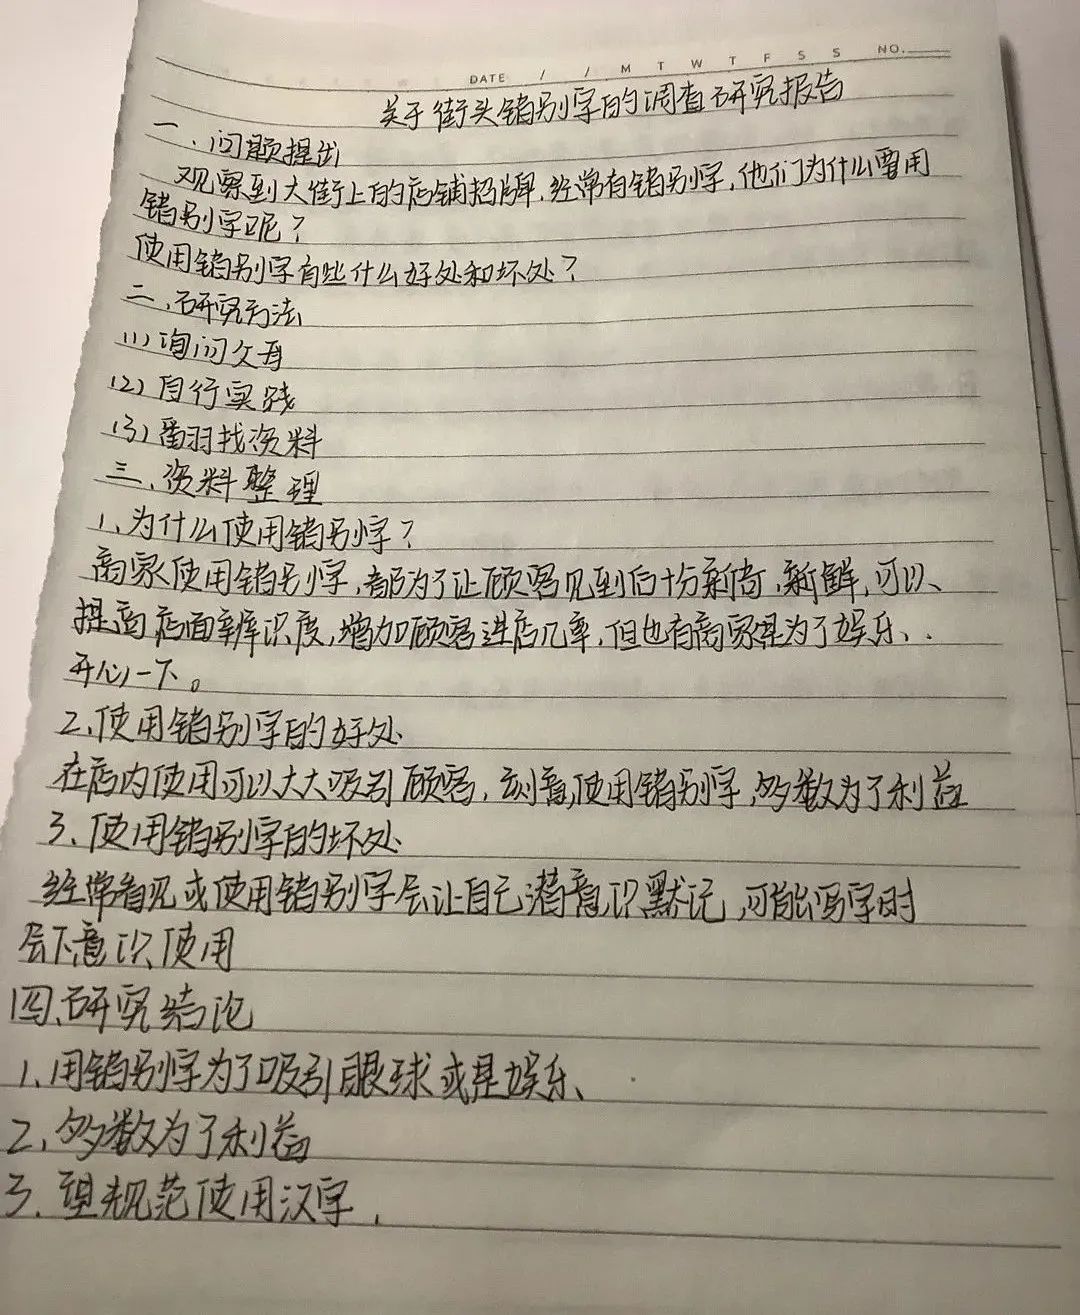 DATE / / M T W T F S S NO.
关于街头错别字的调查研究报告
一、问题提出
观察到大街上的店铺招牌,经常有错别字,他们为什么要用
错别字呢?
使用错别字有些什么好处和坏处?
二、研究方法
(1)询问父母
(2)自行实践
(3)翻找资料
三、资料整理
1、为什么使用错别字?
商家使用错别字,都为了让顾客见到后十分新奇,新鲜,可以、
提高店面辨识度,增加顾客进店几率,但也有商家是为了娱乐、.
开心一下。
2、使用错别字的好处
在店内使用可以大大吸引顾客,刻意使用错别字,多数为了利益
3、使用错别字的坏处
经常看见或使用错别字会让自己潜意识默记,可能写字时
会下意识使用
四、研究结论
1、用错别字为了吸引眼球或是娱乐、
2、多数为了利益
3、望规范使用汉字,